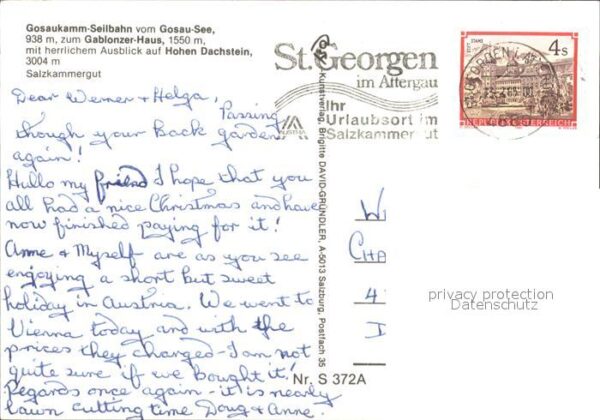 Gosaukamm-Seilbahn vom Gosau-See,
938 m, zum Gablonzer-Haus, 1550 m,
mit herrlichem Ausblick auf Hohen Dachstein,
3004 m
Salzkammergut
Dear Werner + Helga,
Passing
though your back garden
again!
Hullo my friend I hope that you
all had a nice Christmas and have
now finished paying for it!
Anne & Myself are as you see
enjoying a short but sweet
holiday in Austria. We went to
Vienna today and with the
prices they charged - I am not
quite sure if we bought it!
Regards once again - it is nearly
lawn cutting time Doug + Anne.
St. Georgen
im Attergau
Ihr
Urlaubsort im
Salzkammergut
AUSTRIA
Kunstverlag, Brigitte DAVID-GRÜNDLER, A-5013 Salzburg, Postfach 35
Nr. S 372A
4 S
STIFT
REPUBLIK ÖSTERREICH
W
CHA
4
privacy protection
Datenschutz